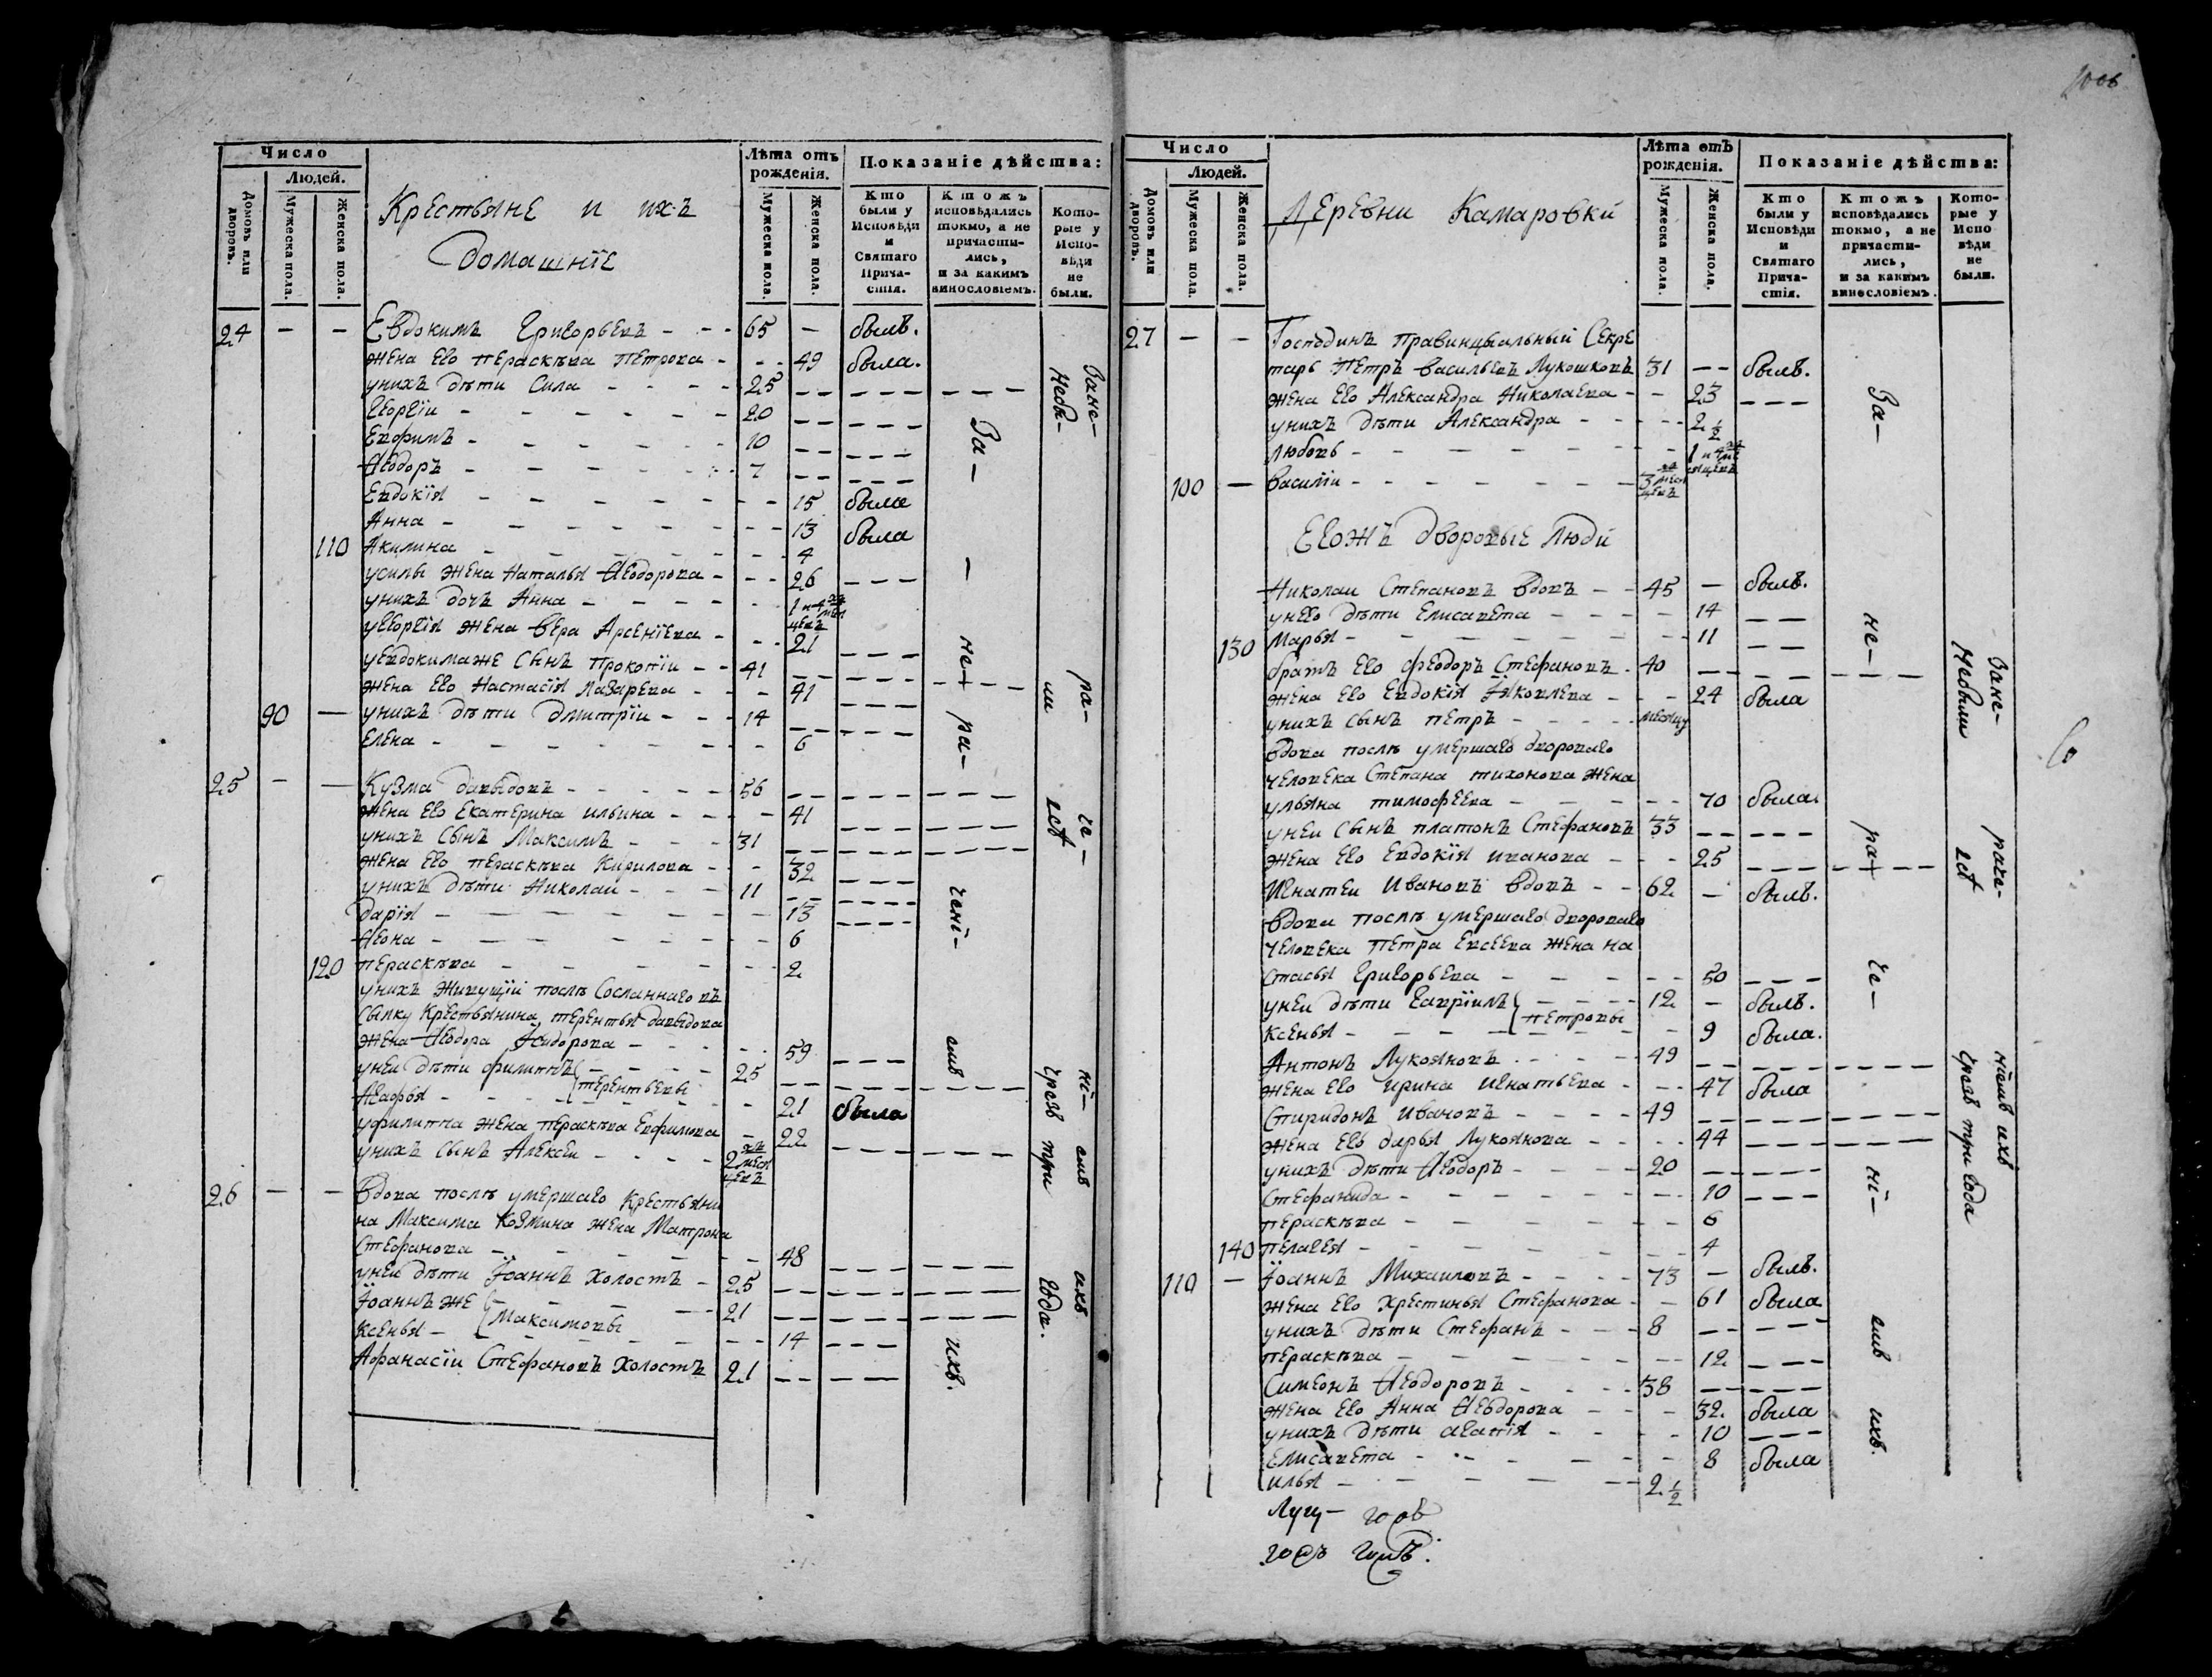 Число
Людей.
Домовъ или дворовъ.
Мужеска пола.
Женска пола.
Крестьяне и ихъ
домашніе
Лѣта отъ рожденія.
Мужеска пола.
Женска пола.
Показаніе дѣйства:
Кто были у Исповѣди и Святаго Причастія.
Ктожъ исповѣдались токмо, а не причастились, и за какимъ винословіемъ.
Которые у Исповѣди не были.
24 — — Евдокимъ Григорьевъ - - - 65 — былъ.
жена его Пераскѣва Петрова - - - 49 была.
у нихъ дѣти Сила - - - - 25
Георгіи - - - - - - 20
Евфимъ - - - - - - 10
Ѳеодоръ - - - - - - 7
Евдокія - - - - - - 15 была
Анна - - - - - - 13 была
110 Акилина - - - - - - 4
у силы жена Наталья Ѳеодорова - - - 26
у нихъ дочь Анна - - - - 1 и 4 месяцевъ
у Георгія жена Вера Арсеніева - - - 21
у евдокима же сынъ Прокопіи - - 41
жена его Настасія Лазарева - - - 41
90 — у нихъ дѣти Дмитріи - - - 14
Елена - - - - - - - 6
25 — — Кузма Давыдовъ - - - - - 56
жена его Екатерина Ильина - - - - 41
у нихъ сынъ Максимъ - - - 31
жена его Пераскѣва Кирилова - - 32
у нихъ дѣти Николаи - - - 11
Дарія - - - - - - - 13
Ѳеона - - - - - - 6
120 Пераскѣва - - - - - - 2
у нихъ живущіи послѣ сосланнаго въ
сылку крестьянина Терентья Давыдова
жена Ѳеодора Ѳеодорова - - - - 59
у неи дѣти Филиппъ - - - - 25
Терентьевы
Агафья - - - - - - 21 была
у филиппа жена Пераскѣва Евфимова - 22
у нихъ сынъ Алексеи - - - - 2 месяцевъ
26 — — Вдова послѣ умершаго крестьяни
на Максима Козмина жена Матрона
Стефанова - - - - - - 48
у неи дѣти Іоаннъ холостъ - 25
Іоаннъ же - - - - 21
Максимовы
Ксенья - - - - - - 14
Афанасіи Стефановъ холостъ 21
За-
не-
ра-
чені-
емъ
ихъ.
Зане-
ра-
че-
ні-
емъ
ихъ
Небы-
ли
чрезъ три
года.
Число
Людей.
Домовъ или дворовъ.
Мужеска пола.
Женска пола.
Деревни Камаровки
Лѣта отъ рожденія.
Мужеска пола.
Женска пола.
Показаніе дѣйства:
Кто были у Исповѣди и Святаго Причастія.
Ктожъ исповѣдались токмо, а не причастились, и за какимъ винословіемъ.
Которые у Исповѣди не были.
27 — — Господинъ Правинцыальный Секре
тарь Петръ Васильевъ Лукошковъ 31 — — былъ.
жена его Александра Николаева - - 23
у нихъ дѣти Александра - - - - 2 ½
Любовь - - - - - - - 1 и 4 месяцевъ
100 — Василіи - - - - - - 3 месяцевъ
Егожъ дворовые люди
Николаи Степановъ вдовъ - - 45 — былъ.
у него дѣти Елисавета - - - - 14
130 Марья - - - - - - - 11
братъ его Феодоръ Стефановъ - 40
жена его Евдокія Яковлева - - - 24 была
у нихъ сынъ Петръ - - - - месяцу
Вдова послѣ умершаго двороваго
человека Степана Тихонова жена
Ульяна Тимофеева - - - - - 70 была.
у неи сынъ Платонъ Стефановъ 33
жена его Евдокія Иванова - - - 25
Игнатеи Ивановъ вдовъ - - 62 — былъ.
Вдова послѣ умершаго двороваго
человека Петра Евсеева жена На
стасья Григорьева - - - - - 50
у неи дѣти Гавріилъ - - - - 12 — былъ.
Петровы
Ксенья - - - - - - - 9 была.
Антонъ Лукояновъ - - - - 49
жена его Ирина Игнатьева - - - 47 была
Спиридонъ Ивановъ - - - - 49
жена его Дарья Лукоянова - - - - 44
у нихъ дѣти Ѳеодоръ - - - - 20
Стефанида - - - - - - 10
Пераскѣва - - - - - - 6
140 Пелагея - - - - - - - 4
110 — Іоаннъ Михаиловъ - - - - 73 — былъ.
жена его Хрестинья Стефанова - - 61 была
у нихъ дѣти Стефанъ - - - 8
Пераскѣва - - - - - - 12
Симеонъ Ѳеодоровъ - - - - 38
жена его Анна Ѳеодорова - - - 32 была
у нихъ дѣти Агапія - - - - 10
Елисавета - - - - - - 8 была
Илья - - - - - - - 2 ½
За-
не-
ра-
че-
ні-
емъ
ихъ.
Зане-
раче-
ніемъ ихъ
Небыли
чрезъ три года